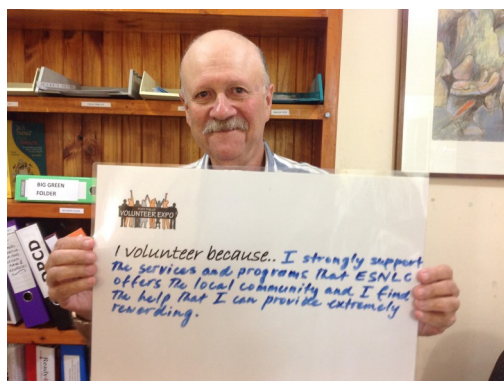 BIG GREEN
FOLDER
VOLUNTEER EXPO
I volunteer because.. I strongly support
the services and programs that ESNLC
offers the local community and I find
the help that I can provide extremely
rewarding.